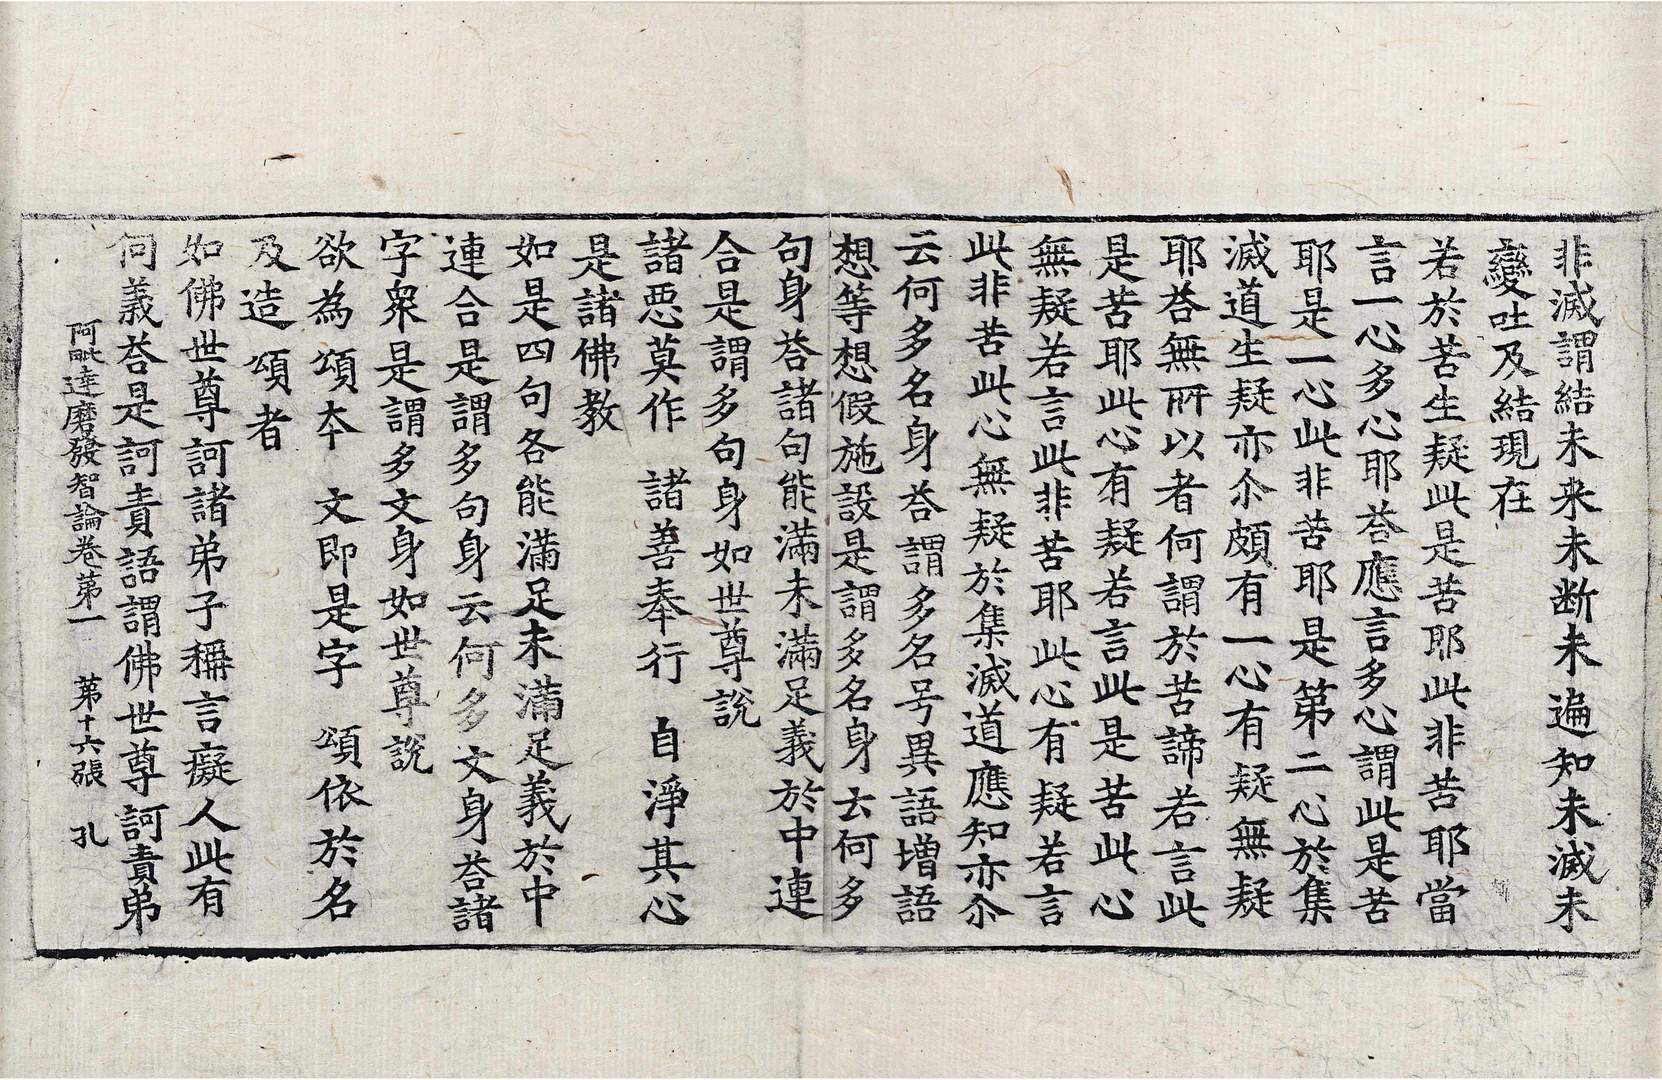 非滅謂結未来未断未遍知未滅未
變吐及結現在
若於苦生疑此是苦耶此非苦耶當
言一心多心耶荅應言多心謂此是苦
耶是一心此非苦耶是第二心於集
滅道生疑亦尒頗有一心有疑無疑
耶荅無所以者何謂於苦諦若言此
是苦耶此心有疑若言此是苦此心
無疑若言此非苦耶此心有疑若言
此非苦此心無疑於集滅道應知亦尒
云何多名身荅謂多名号異語増語
想等想假施設是謂多名身云何多
句身荅諸句能滿未滿足義於中連
合是謂多句身如世尊說
諸惡莫作　諸善奉行　自淨其心
是諸佛教
如是四句各能滿足未滿足義於中
連合是謂多句身云何多文身荅諸
字衆是謂多文身如世尊說
欲為頌本　文即是字　頌依於名
及造頌者
如佛世尊訶諸弟子稱言癡人此有
何義荅是訶責語謂佛世尊訶責弟
阿毗達磨發智論卷苐一　苐十六張　孔